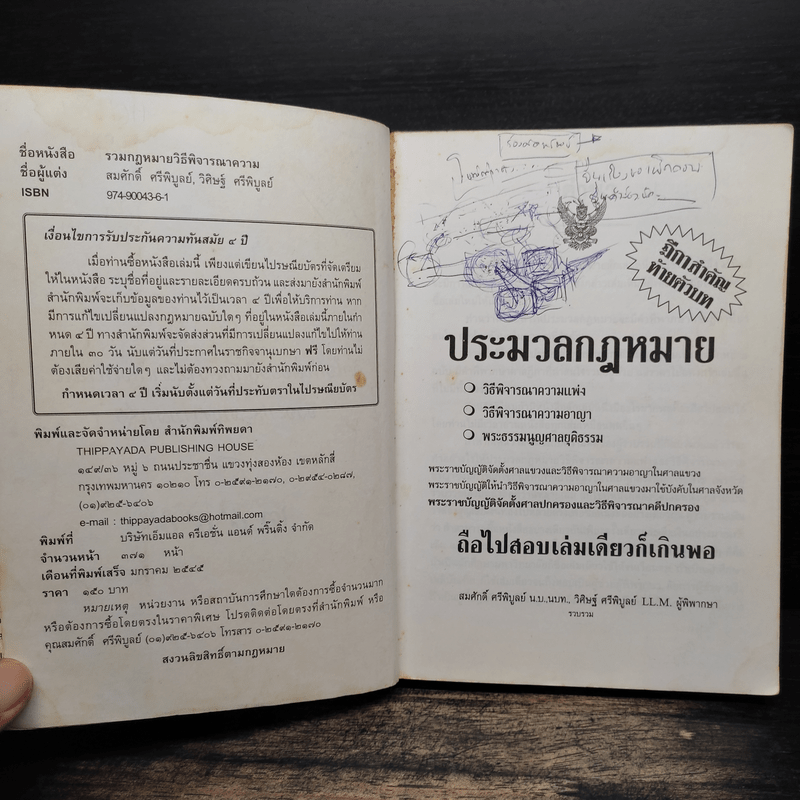 ชื่อหนังสือ รวมกฎหมายวิธีพิจารณาความ
ชื่อผู้แต่ง สมศักดิ์ ศรีพิบูลย์, วิศิษฐ์ ศรีพิบูลย์
ISBN 974-90043-6-1
เงื่อนไขการรับประกันความทันสมัย ๔ ปี
เมื่อท่านซื้อหนังสือเล่มนี้ เพียงแต่เขียนไปรษณียบัตรที่จัดเตรียม
ให้ในหนังสือ ระบุชื่อที่อยู่และรายละเอียดครบถ้วน และส่งมายังสำนักพิมพ์
สำนักพิมพ์จะเก็บข้อมูลของท่านไว้เป็นเวลา ๔ ปีเพื่อให้บริการท่าน หาก
มีการแก้ไขเปลี่ยนแปลงกฎหมายฉบับใดๆ ที่อยู่ในหนังสือเล่มนี้ภายในกำ
หนด ๔ ปี ทางสำนักพิมพ์จะจัดส่งส่วนที่มีการเปลี่ยนแปลงแก้ไขไปให้ท่าน
ภายใน ๓๐ วัน นับแต่วันที่ประกาศในราชกิจจานุเบกษา ฟรี โดยท่านไม่
ต้องเสียค่าใช้จ่ายใดๆ และไม่ต้องทวงถามมายังสำนักพิมพ์ก่อน
กำหนดเวลา ๔ ปี เริ่มนับตั้งแต่วันที่ประทับตราในไปรษณียบัตร
พิมพ์และจัดจำหน่ายโดย สำนักพิมพ์ทิพยดา
THIPPAYADA PUBLISHING HOUSE
๑๔๙/๓๖ หมู่ ๖ ถนนประชาชื่น แขวงทุ่งสองห้อง เขตหลักสี่
กรุงเทพมหานคร ๑๐๒๑๐ โทร ๐-๒๕๙๑-๒๑๗๐, ๐-๒๙๕๔-๐๒๘๗,
(๐๑)๙๒๕-๖๔๐๖
e-mail : thippayadabooks@hotmail.com
พิมพ์ที่ บริษัทเอ็มแอล ครีเอชั่น แอนด์ พริ้นติ้ง จำกัด
จำนวนหน้า ๓๗๑ หน้า
เดือนที่พิมพ์เสร็จ มกราคม ๒๕๔๕
ราคา ๑๕๐ บาท
หมายเหตุ หน่วยงาน หรือสถาบันการศึกษาใดต้องการซื้อจำนวนมาก
หรือต้องการซื้อโดยตรงในราคาพิเศษ โปรดติดต่อโดยตรงที่สำนักพิมพ์ หรือ
คุณสมศักดิ์ ศรีพิบูลย์ (๐๑)๙๒๕-๖๔๐๖ โทรสาร ๐-๒๕๙๑-๒๑๗๐
สงวนลิขสิทธิ์ตามกฎหมาย
ฎีกาสำคัญ
ท้ายตัวบท
ประมวลกฎหมาย
วิธีพิจารณาความแพ่ง
วิธีพิจารณาความอาญา
พระธรรมนูญศาลยุติธรรม
พระราชบัญญัติจัดตั้งศาลแขวงและวิธีพิจารณาความอาญาในศาลแขวง
พระราชบัญญัติให้นำวิธีพิจารณาความอาญาในศาลแขวงมาใช้บังคับในศาลจังหวัด
พระราชบัญญัติจัดตั้งศาลปกครองและวิธีพิจารณาคดีปกครอง
ถือไปสอบเล่มเดียวก็เกินพอ
สมศักดิ์ ศรีพิบูลย์ น.บ.,นบท., วิศิษฐ์ ศรีพิบูลย์ LL.M. ผู้พิพากษา
รวบรวม